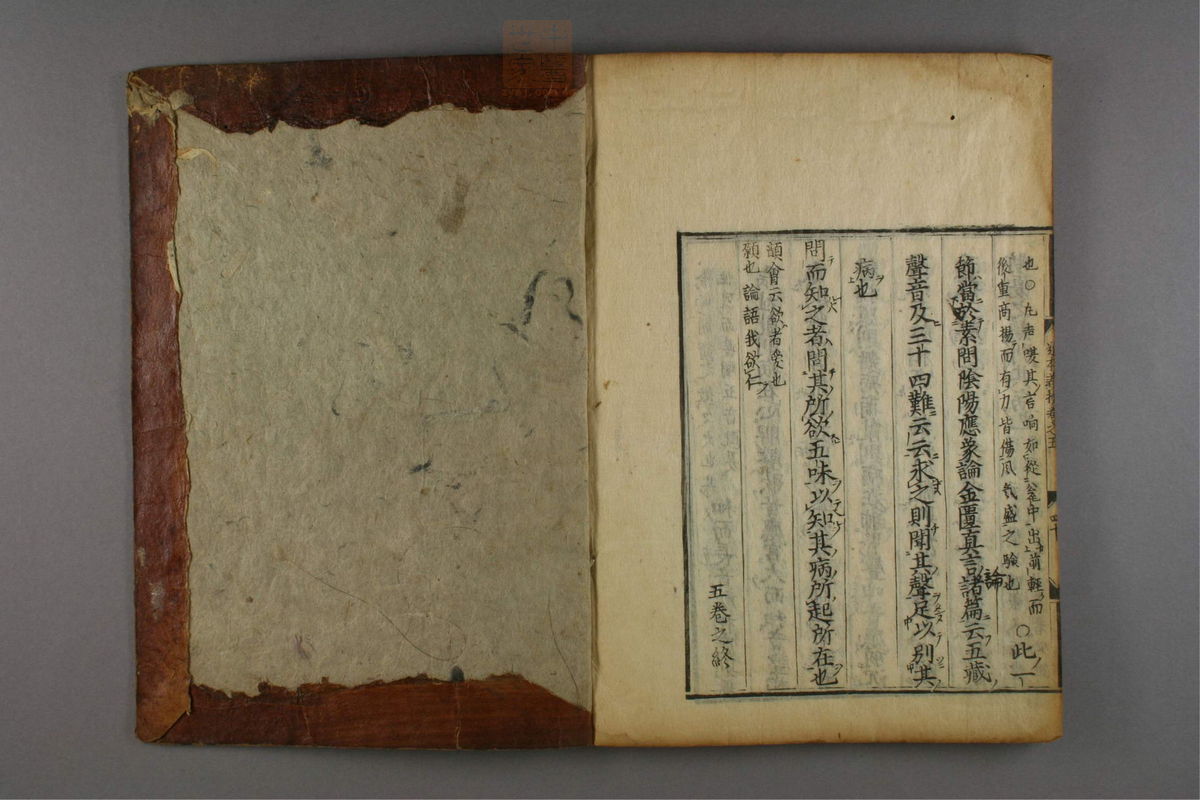 也○九声嗄其音响如從瓮中出前軽而
後重高揚而有力皆傷風氣盛之験也
○此一
節當於素問陰陽應象論金匱真言論諸篇云五藏
聲音及三十四難云云求之則聞其聲足以別其
病也
問而知之者問其所欲五味以知其病所起所在也
韻會云欲者愛也
願也論語我欲仁
五巻之終